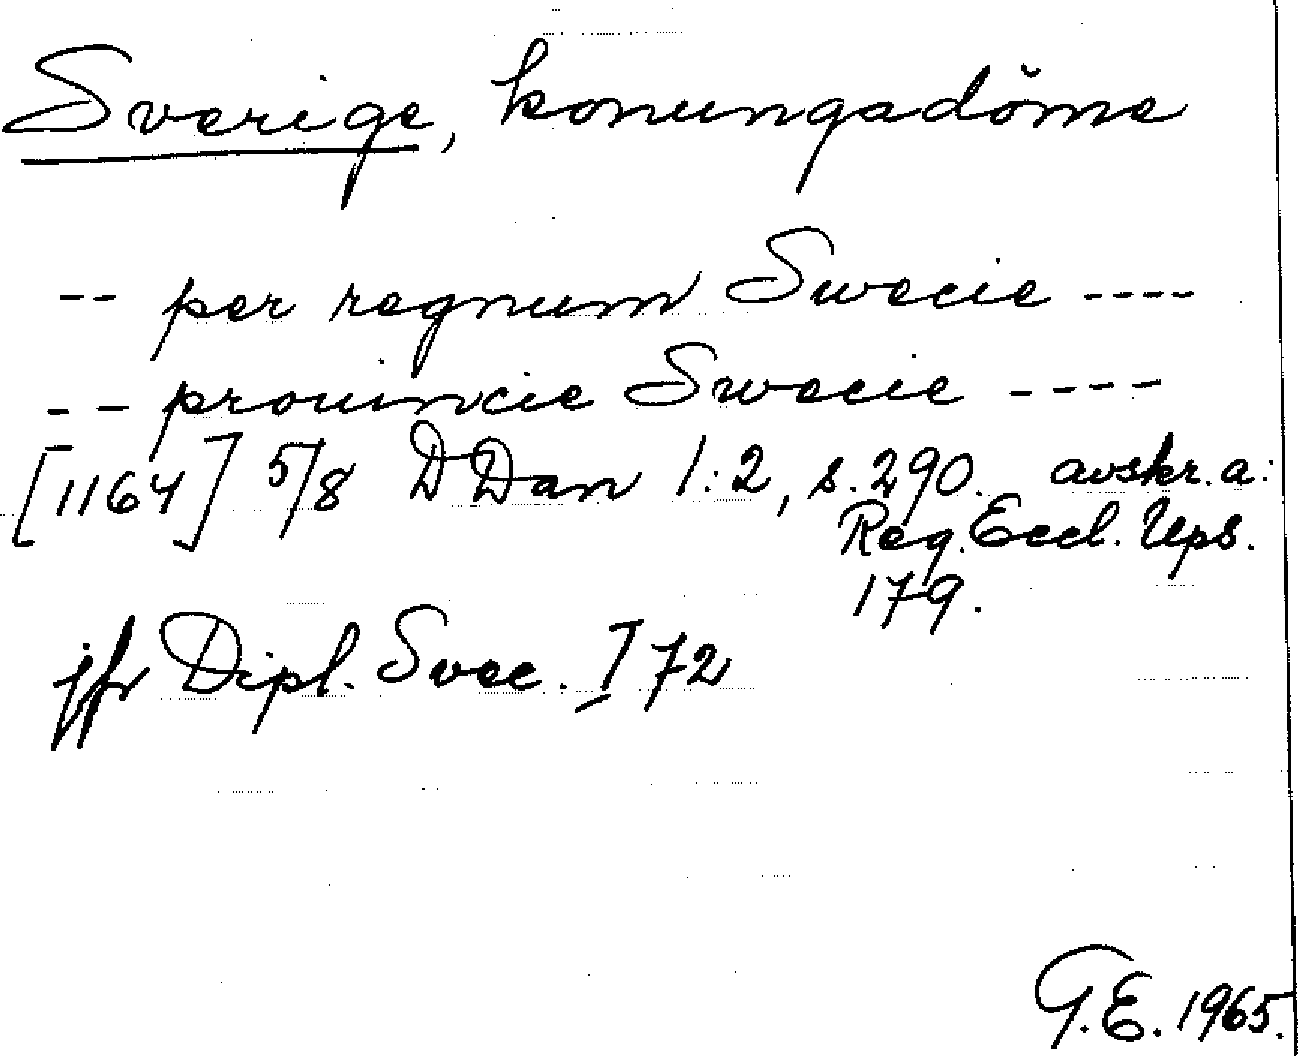 Sverige, konungadöme
-- per regnum Swecie ----
-- prouincie Swecie ----
[1164] 5/8 DDan 1:2, s.290. avskr. a:
Reg. Eccl. Ups.
179.
jfr Dipl. Svec. I 72
G.E. 1965.